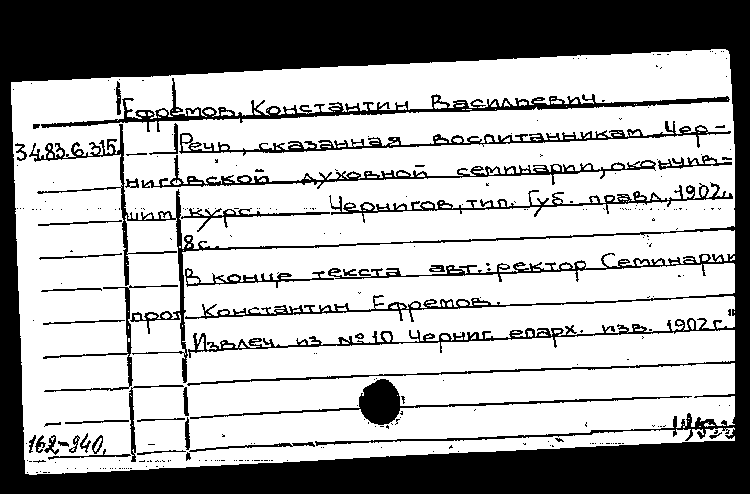 Ефремов, Константин Васильевич.
34.83.6.315. Речь, сказанная воспитанникам Чер-
ниговской духовной семинарии, окончив-
шим курс. Чернигов, тип. Губ. правл., 1902.
8 с.
В конце текста авт.: ректор Семинарии
прот. Константин Ефремов.
"Извлеч. из № 10 Черниг. епарх. изв. 1902 г."
162-940.